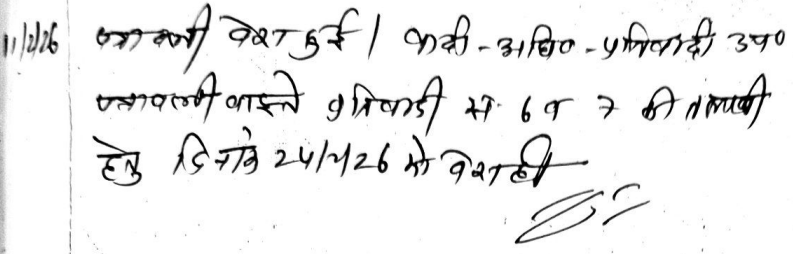 11/2/26 पत्रावली पेश हुई। वादी-अधि०-प्रतिवादी उप०
पत्रावली वास्ते प्रतिवादी सं 6 व 7 की तलबी
हेतु दिनांक 24/2/26 को पेश हो